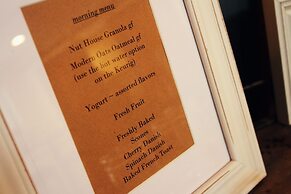 morning menu
Nut House Granola gf
Modern Oats Oatmeal gf
(use the hot water option
on the Keurig)
Yogurt ~ assorted flavors
Fresh Fruit
Freshly Baked
Scones
Cherry Danish
Spinach Danish
Baked French Toast